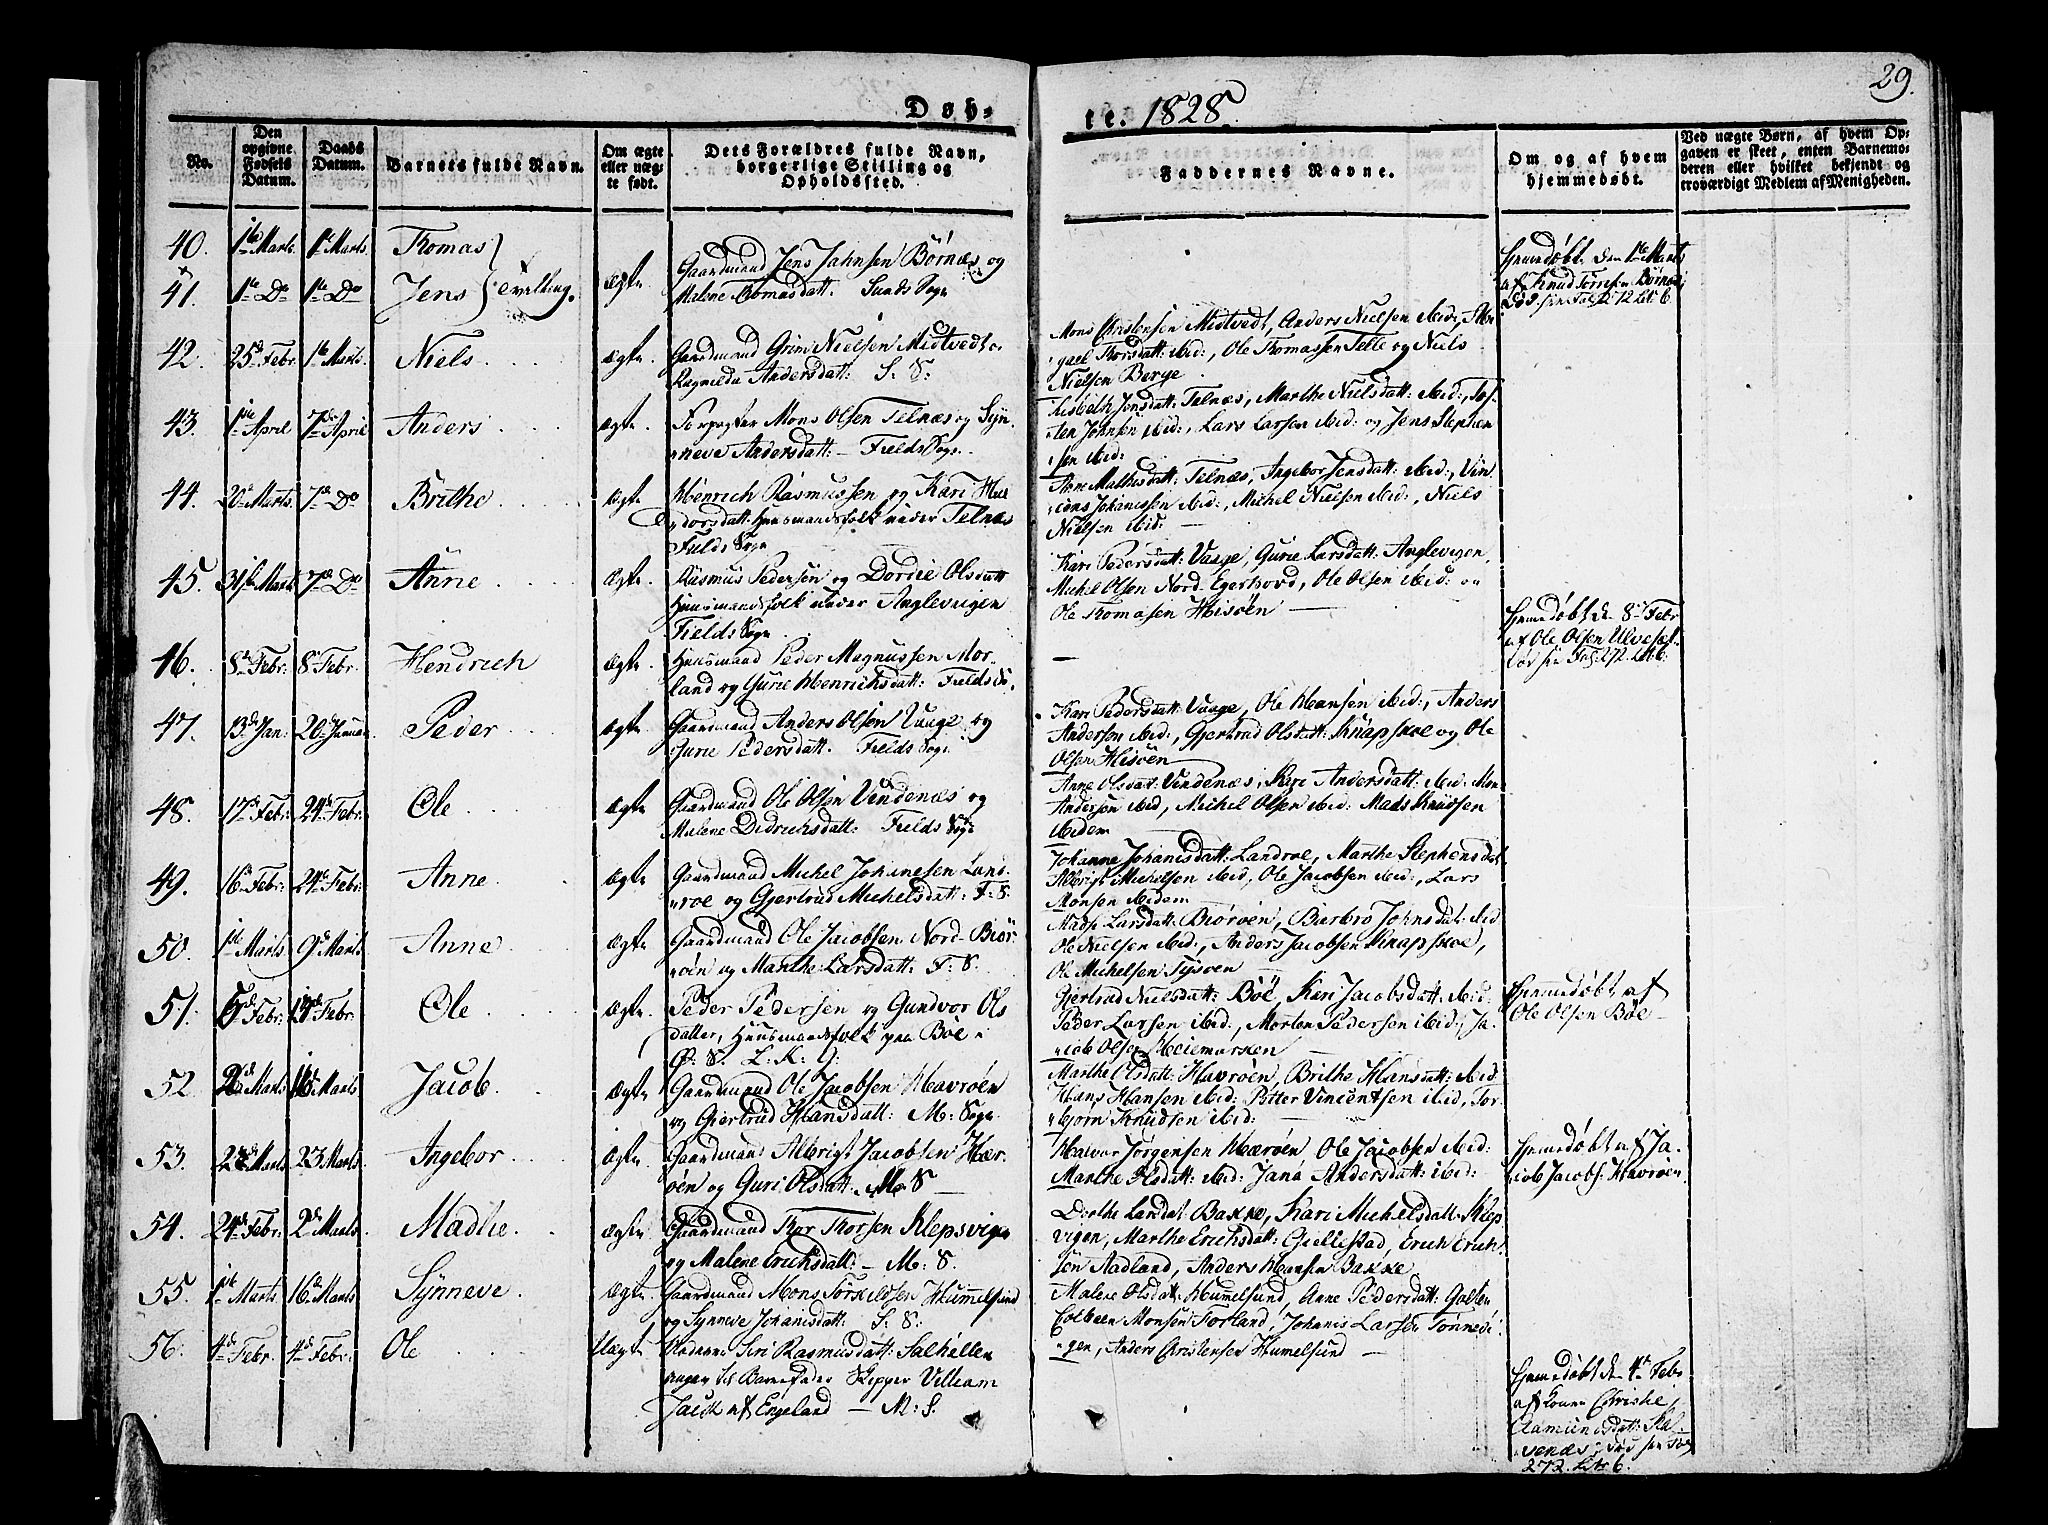 29.
Døb-
te. 1828.
No.
Den opgivne Fødsels Datum.
Daabs Datum.
Barnets fulde Navn.
Om ægte eller uægte født.
Dets Forældres fulde Navn, borgerlige Stilling og Opholdssted.
Faddernes Navne.
Om og af hvem hjemmedøbt.
Ved uægte Børn, af hvem Opgaven er skeet, enten Barnemoderen eller hvilket bekjendt og troværdigt Medlem af Menigheden.
40. 1te Marts 1te Marts Thomas
41. 1te Do 1te Do Jens Tvilling. Ægte
Gaardmand Jens Jahnsen Börnæs og
Malene Thomasdatt. Sunds Sogn
Hjemedöbt den 1te Marts
af Knud Börnæs
42. 25d Febr 1te Marts Niels Ægte.
Gaardmand Grim Nielsen Midtvedt o
Ragnilda Andersdatt: S: S:
Mons Christensen Midtvedt, Anders Nielsen ibid:,
Thorsdatt: ibid:, Ole Thomassen Telle og Niels
Nielsen Berge
43. 1te April 7de April Anders Ægte.
Forpagter Mons Olsen Telnæs og Syn-
neve Andersdatt: – Fields Sogn
Lisbeth Jonsdatt: Telnæs, Marthe Nielsdatt: ibid:, Tos-
ten Johnsen ibid:, Lars Larsen ibid: og Jens Stephen
sen ibid:
44. 20de Marts 7de Do Brithe Ægte
Henrich Rasmussen og Kari Hal
dorsdatt: Huusmandsfolk under Telnæs
Fields Sogn
Anne Mathisdatt: Telnæs, Ingebor Jensdatt: ibid:, Vin
cens Johanissen ibid:, Michel Nielsen ibid:, Niels
Nielsen ibid: –
45. 31te Marts 7de Do Anne Ægte.
Rasmus Pedersen og Dordie Olsdatt
Huusmandsfolk under Anglevigen
Fields Sogn
Kari Pedersdatt: Vaage, Gurie Larsdatt: Anglevigen,
Michel Olsen Nord Egerhovd, Ole Olsen ibid: og
Ole Thomasen Hisöen –
46. 8de Febr: 8de Febr Hendrich Ægte.
Huusmand Peder Magnussen Mor-
land og Gurie Henrichsdatt: Fields S.
–
Hjemedöbt d. 8de Febr
af Ole Olsen
47. 13de Jan: 20de Januar Peder Ægte.
Gaardmand Anders Olsen Vaage og
Gurie Pedersdatt. Fields Sogn
Kari Pedersdatt: Vaage, Ole Hansen ibid:, Anders
Andersen ibid:, Gjertrud Olsdatt: Knapskoe og Ole
Olsen Hisöen
48. 17de Febr: 24de Febr. Ole Ægte
Gaardmand Ole Olsen Vindenæs og
Malene Didrichsdatt: Fields Sogn
Anne Olsdatt: Vindenæs, Kari Andersdatt: ibid: Mon
Andersen ibid, Michel Olsen ibid: Mads Knudsen
ibidem
49. 16de Febr: 24de Febr: Anne Ægte
Gaardmand Michel Johanesen Land-
roe og Gjertrud Michelsdatt: F: S.
Johanne Johanisdatt: Landroe, Marthe Stephensdat
Albrigt Michelsen ibid, Ole Jacobsen ibid:, Lars
Monsen ibidem
50. 1te Marts 9de Marts Anne Ægte
Gaardmand Ole Jacobsen Nord-Biör-
öen og Marthe Larsdatt: F: S.
Larsdatt: Biöröen, Barbro Johnsdat: ibid
Ole Nielsen ibid:, Anders Jacobsen Knapskoe,
Ole Michelsen Tysöen
51. Febr: Febr. Ole Ægte.
Peder Pedersen og Gundvor Ols
datter, Huusmandsfolk paa Böe i
Gjertrud Nielsdatt: Böe, Kari Jacobsdatt: ibid:
Peder Larsen ibid:, Morten Pedersen ibid:, Ja-
cob Olsen Heiemarken
Hjemmedöbt af
Ole Olsen Böe –
52. Marts Marts Jacob Ægte
Gaardmand Ole Jacobsen Havröen
og Gjertrud Hansdatt: M: Sogn.
Marthe Olsdatt: Havröen, Brithe Hansdatt: ibid
Hans Hansen ibid: Petter Vincentsen ibid, Tor-
biörn Knudsen ibid: –
53. 23de Marts 23 Marts Ingebor Ægte
Gaardmand Albrigt Jacobsen Hær-
öen og Guri Olsdatt: M: S –
Halvor Jörgensen Hæröen Ole Jacobsen ibid:
Marthe Olsdatt: ibid: Jana Andersdatt: ibid:
Hjemedöbt af Ja-
cob Jacobs: Havröen.
54. 24de Febr: 2de Marts Madlie Ægte.
Gaardmand Thor Thorsen Klepsvigen
og Malene Erichsdatt: – M: S.
Dorthe Larsdat: Bakke, Kari Michelsdatt: Klep
vigen, Marthe Erichsdatt: Giellestad, Erich Erich-
sen Aadland, Anders Hansen Bakke,
55. 1te Marts 16de Marts Synneve Ægte.
Gaardmand Mons Torkildsen Hummelsund
og Synneve Johanisdatt: S: S.
Malene Olsdat: Hummelsund, Anne Pedersdatt: Golten
Colbeen Monsen Forland, Johanis Larsen Tönnevi-
gen, Anders Christensen Humelsund –
56. 4de Febr. 4de Febr: Ole Uægte
Siri Rasmusdatt: Salhellen
til Barnefader Skipper Villeam
Jack af Engeland – M: S.
Hjemedöbt d. 4de Febr
af Christie
Aamundsdatt:
272. Litr 6.